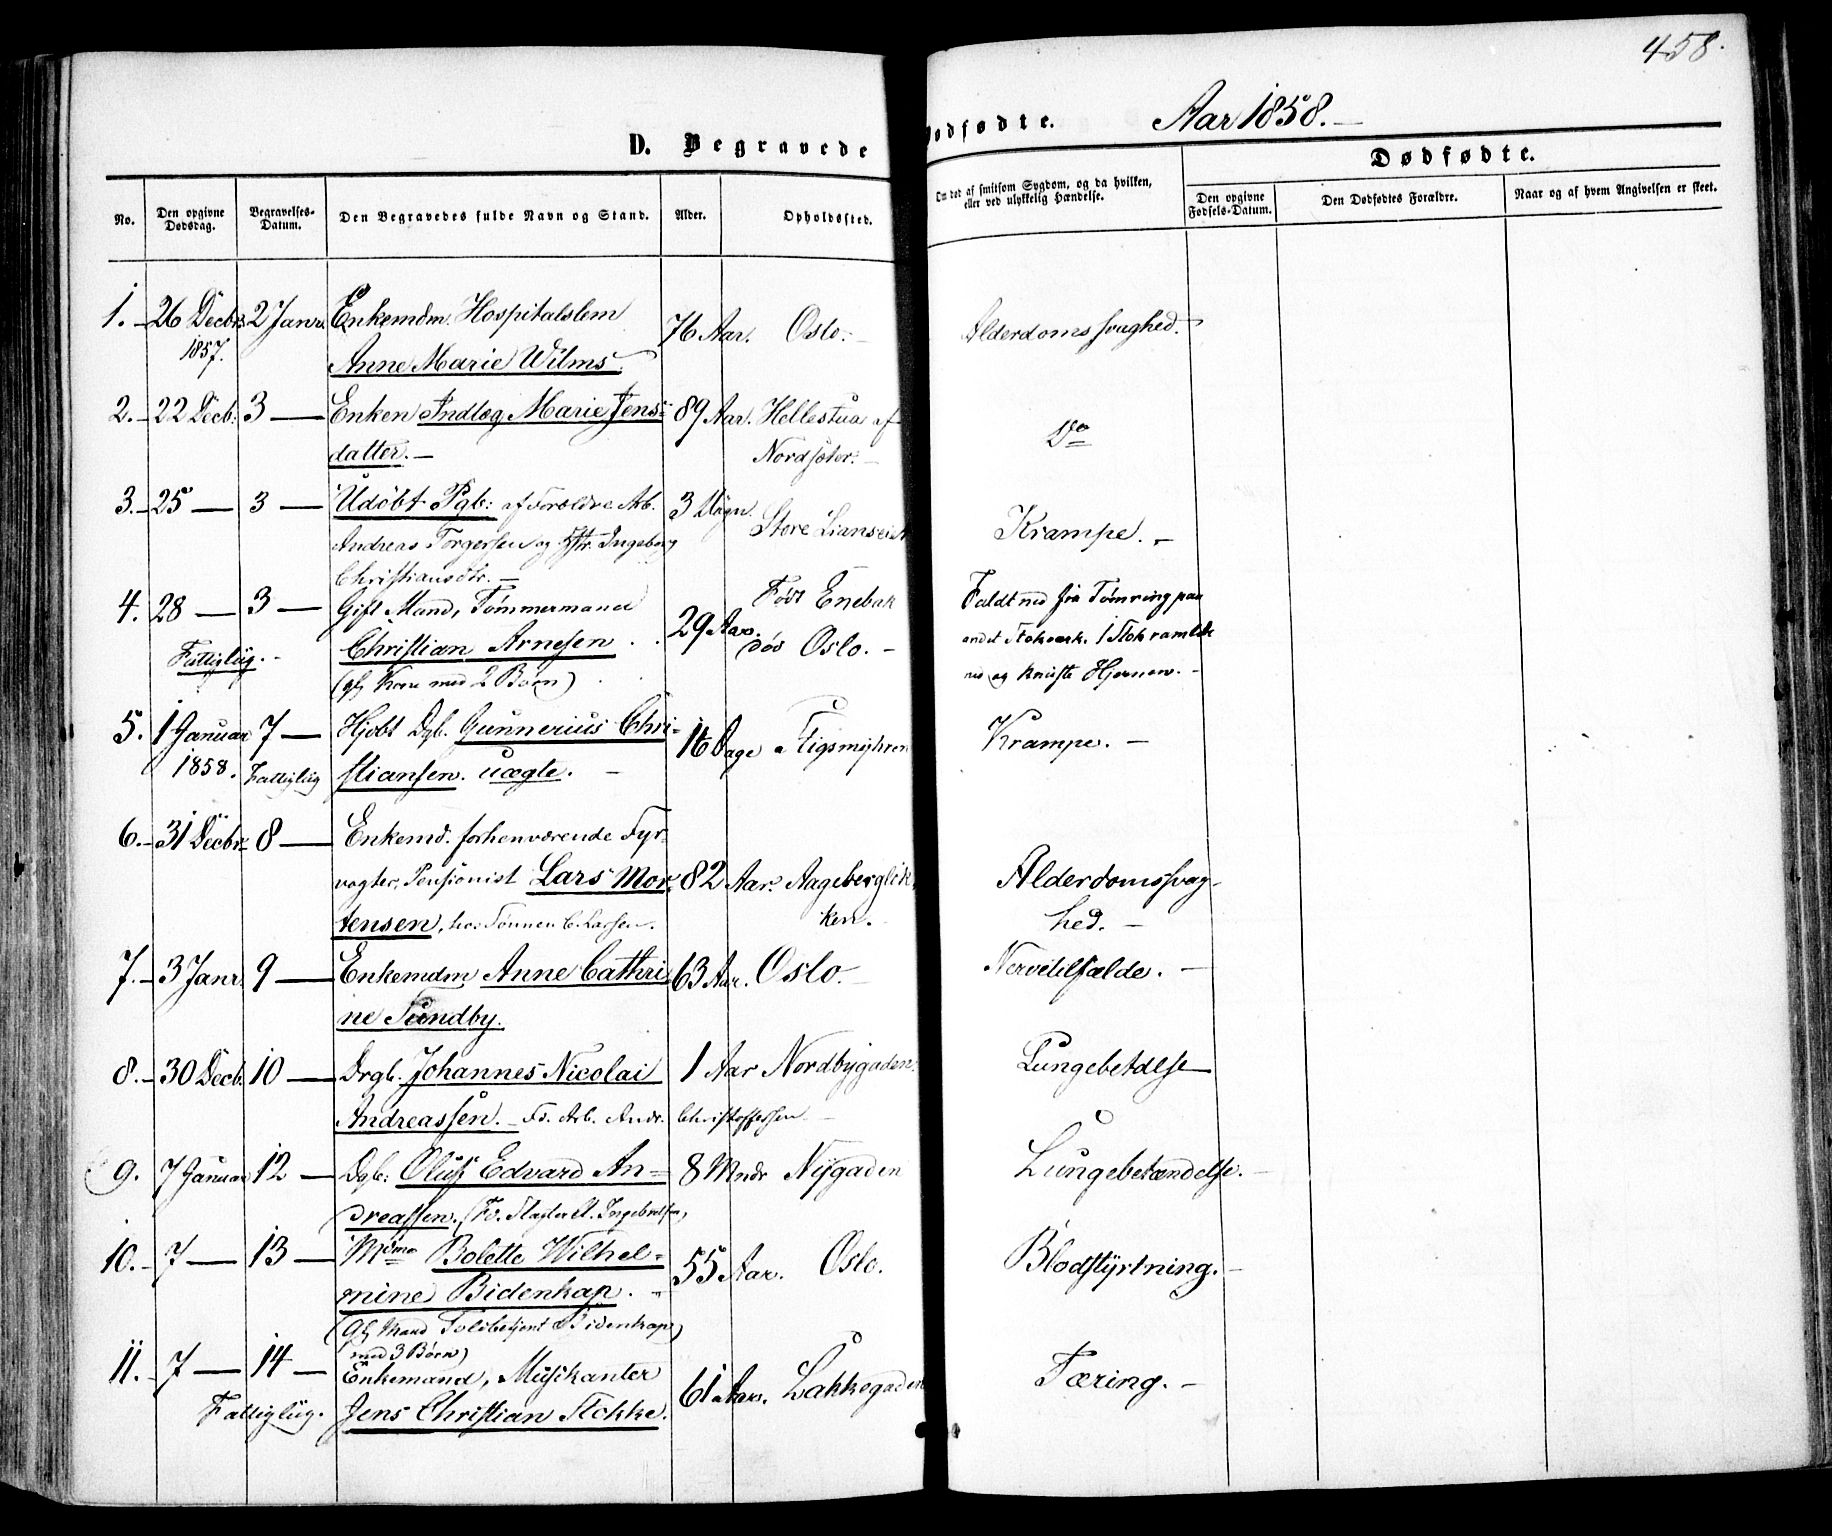 458.
D. Begravede
Dødfødte. Aar 1858.
No. Den opgivne Dødsdag. Begravelses-Datum. Den Begravedes fulde Navn og Stand. Alder. Opholdssted.
Om død af smitsom Sygdom, og da hvilken, eller ved ulykkelig Hændelse.
Dødfødte.
Den opgivne Fødsels-Datum. Den Dødfødtes Forældre. Naar og af hvem Angivelsen er skeet.
1. 26 Decbr. 2 Janr. Enkemdm. Hospitalslem 76 Aar. Oslo. Alderdomssvaghed.
1857. Anne Marie Wilms.
2. 22 Decb. 3 — Enken Indlæg Marie Jens- 89 Aar. Hellestua af Do
datter. — Nordseter.
3. 25 — 3 — Udøbt Pgb: af Forældre Arb. 3 Uger Store Krampe.
Andreas Torgersen og Hstr. Ingeborg
Christiansdtr. —
4. 28 — 3 — Gift Mand, Tømmermand 29 Aar. Født Enebak Faldt ned fra Tømring paa
Fattiglüg. Christian Arnesen død Oslo. — andet Stokværk. 1 Stok ramlede
(glf Kone med 2 Børn) ned og knuste Hjernen. —
5. 1 Januar 7 — Hjdbt Dgb. Gunnerius Chri- 16 Dage Krampe. —
1858. Fattiglüg stiansen. uægte. —
6. 31 Decbr. 8 — Enkemd. forhenværende Fyr-
vogter, Pensionist Lars Mor- 82 Aar. Aagebergløk- Alderdomssvag-
tensen, hos Sønnen C. Larsen. ken. hed. —
7. 3 Janr. 9 — Enkemdm Anne Cathri- 63 Aar. Oslo. Nervetilfælde. —
ne Sundby.
8. 30 Decb. 10 — Drgb. Johannes Nicolai 1 Aar Nordbygaden. Lungebetdlse
Andreassen. — Fd. Arb. Andr. Christoffersen. —
9. 7 Januar 12 — Dgb: Oluf Edvard An- 8 Mndr Nÿgaden Lungebetændelse. —
dreassen. (Fd. Slagter A. Ingebretsen)
10. 7 — 13 — Mdme Bolette Wilhel- 55 Aar. Oslo. Blodstÿrtning. —
mine Bidenkap. —
(glf Mand Toldbetjent Bidenkap
med 3 Børn)
11. 7 — 14 — Enkemand, Musikanter 61 Aar. Lakkegaden Tæring. —
Fattiglüg. Jens Christian Stokke.